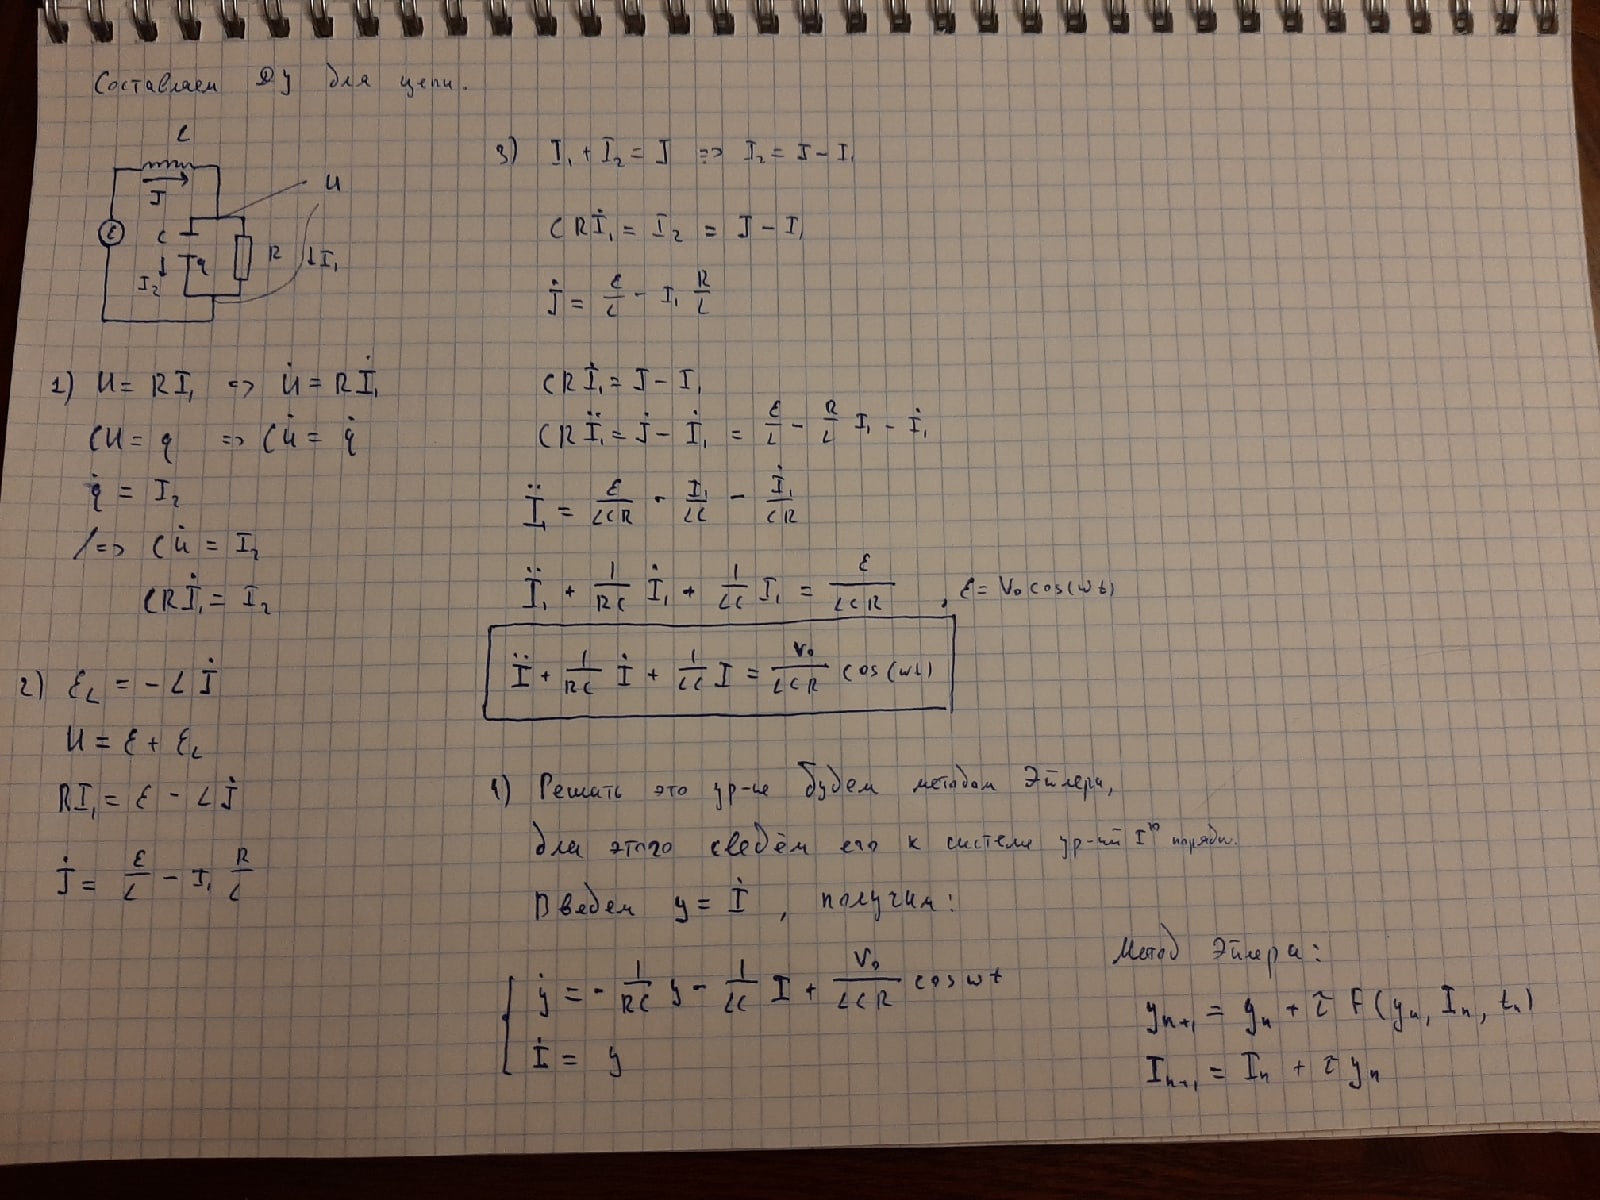 Составляем ДУ для цепи.
L
J
ε
C
q
I₂
R
↓I₁
U
1) U = RI₁ => U̇ = Rİ₁
CU = q => CU̇ = q̇
q̇ = I₂
/=> CU̇ = I₂
CRİ₁ = I₂
2) ε_L = -LJ̇
U = ε + ε_L
RI₁ = ε - LJ̇
J̇ = ε/L - I₁ R/L
3) I₁ + I₂ = J => I₂ = J - I₁
CRİ₁ = I₂ = J - I₁
J̇ = ε/L - I₁ R/L
CRİ₁ = J - I₁
CRÏ₁ = J̇ - İ₁ = ε/L - R/L I₁ - İ₁
Ï₁ = ε/LCR - I₁/LC - İ₁/CR
Ï₁ + 1/RC İ₁ + 1/LC I₁ = ε/LCR , ε = V₀ cos(ωt)
Ï + 1/RC İ + 1/LC I = V₀/LCR cos(ωt)
4) Решать это ур-ие будем методом Эйлера,
для этого сведём его к системе ур-ий I⁰ порядк.
Введем y = İ , получим:
ẏ = - 1/RC y - 1/LC I + V₀/LCR cos ωt
İ = y
Метод Эйлера:
yₙ₊₁ = yₙ + τ F(yₙ, Iₙ, tₙ)
Iₙ₊₁ = Iₙ + τ yₙ